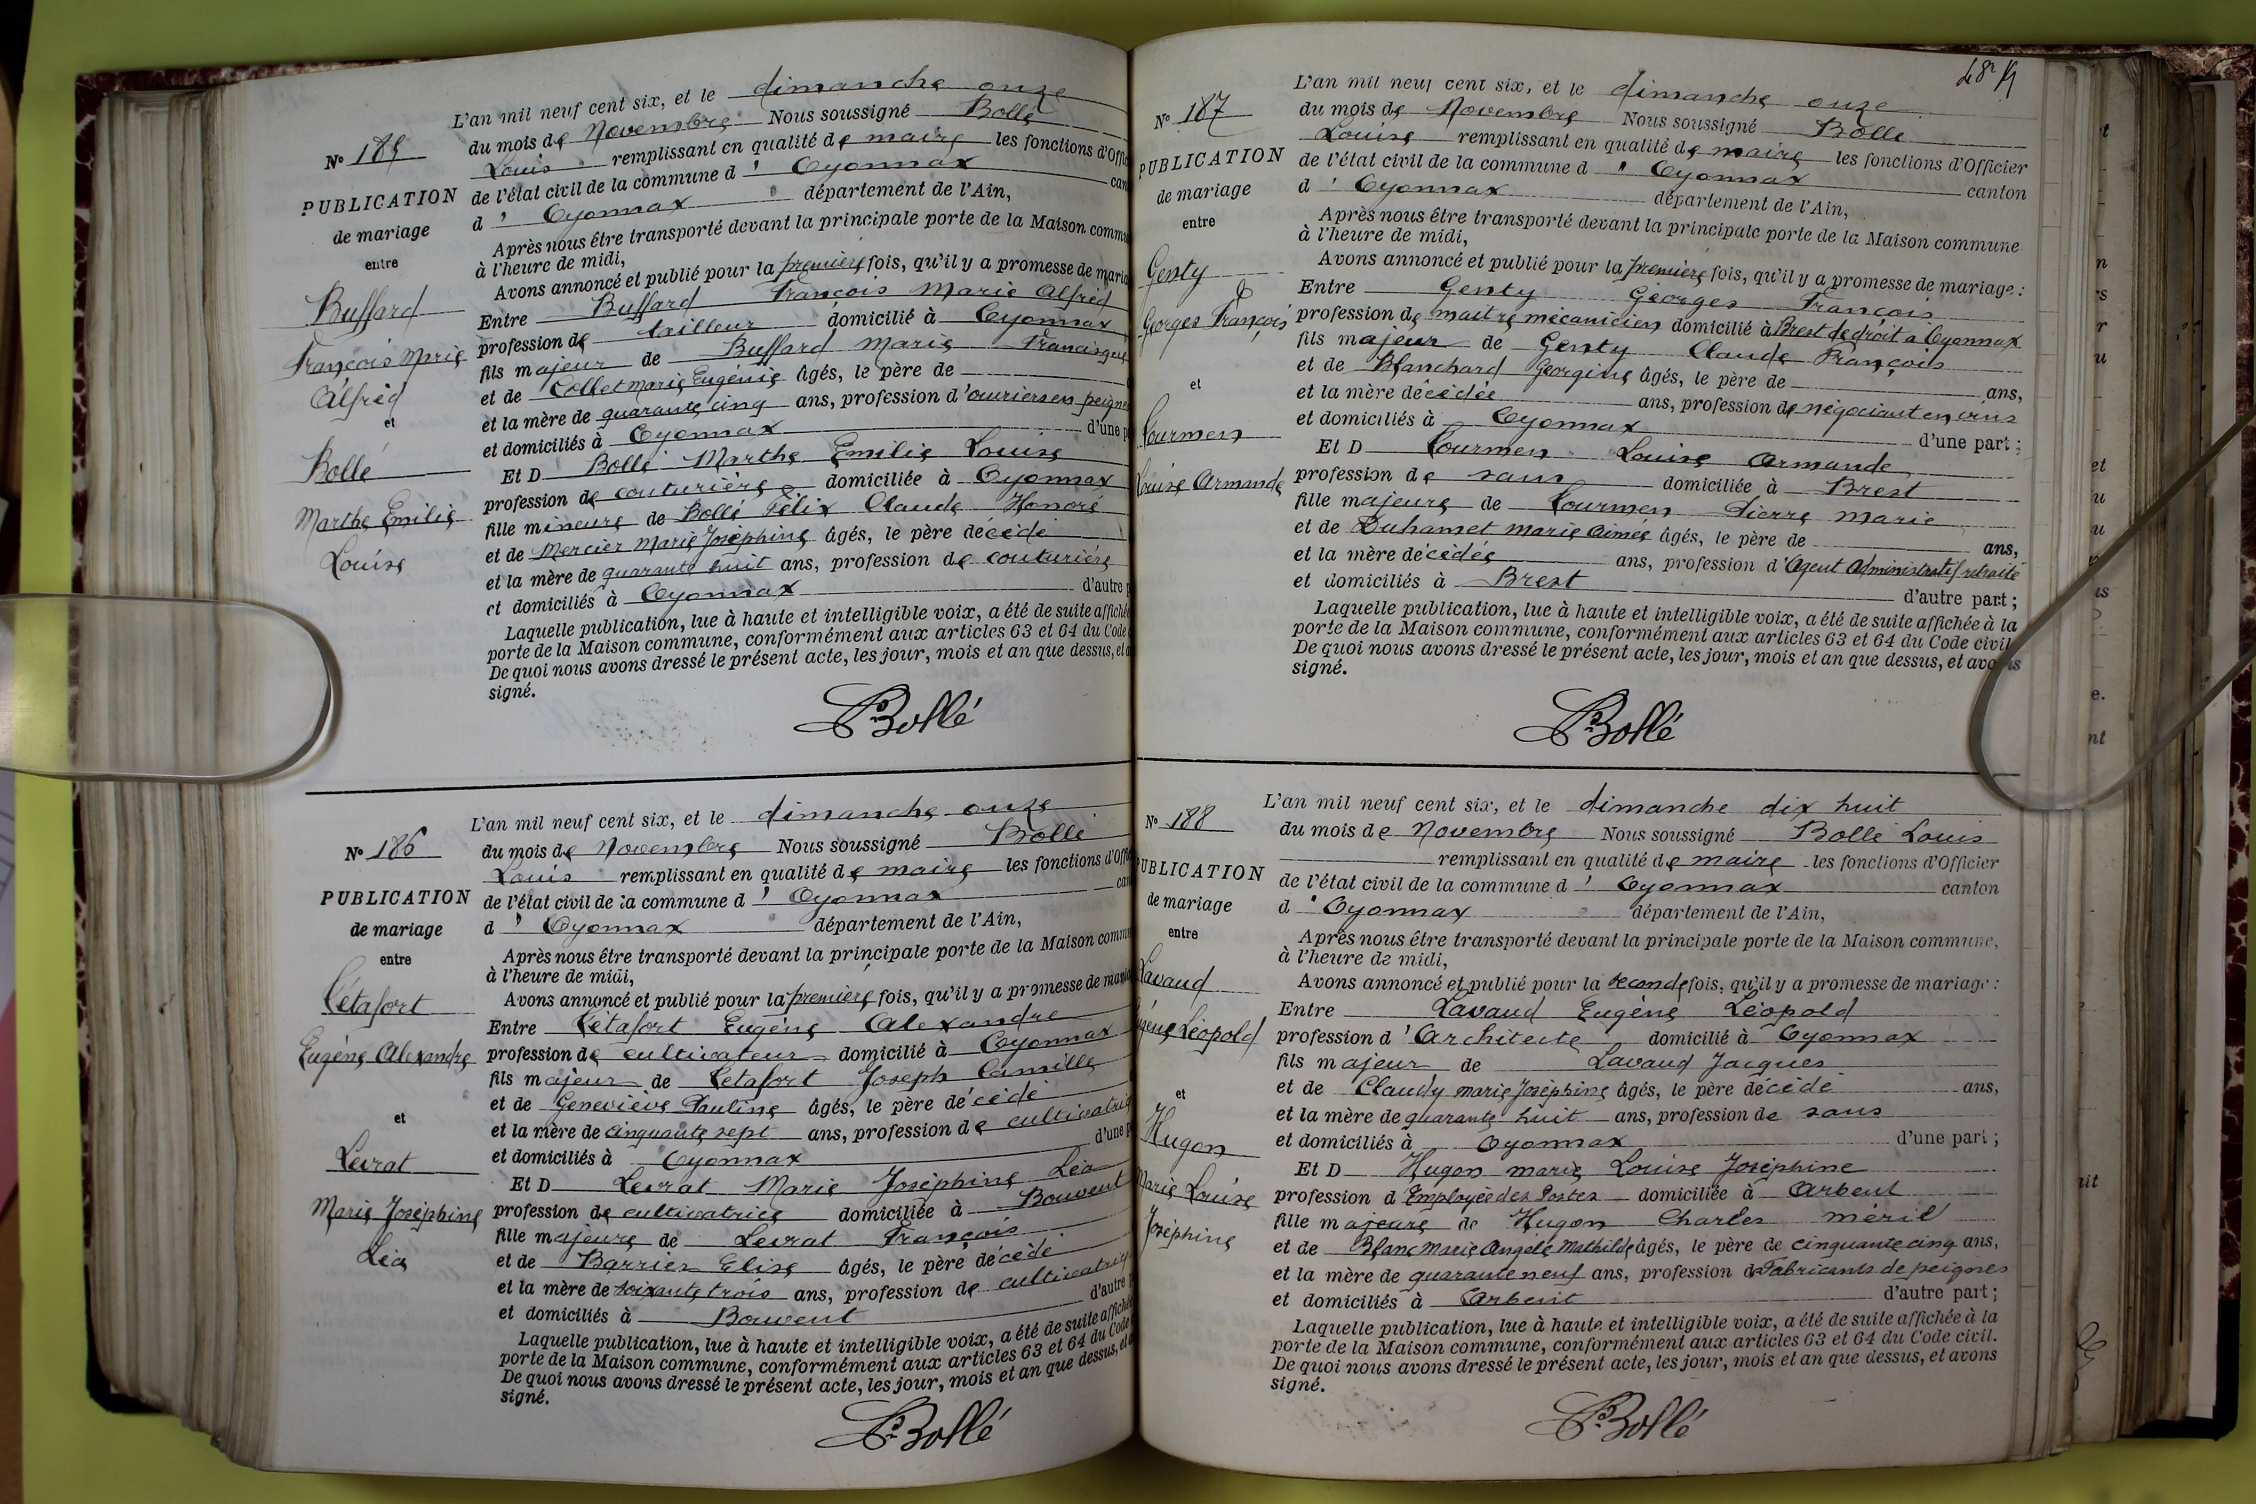 N° 185
PUBLICATION
de mariage
entre
Buffard
François Marie
Alfred
et
Bollé
Marthe Emilie
Louise
L'an mil neuf cent six, et le dimanche onze
du mois de Novembre Nous soussigné Bollé
Louis remplissant en qualité de maire les fonctions d'Offi
de l'état civil de la commune d' Oyonnax can
d' Oyonnax département de l'Ain,
Après nous être transporté devant la principale porte de la Maison commu
à l'heure de midi,
Avons annoncé et publié pour la première fois, qu'il y a promesse de maria
Entre Buffard François Marie Alfred
profession de tailleur domicilié à Oyonnax
fils majeur de Buffard Marie Francisque
et de Collet Marie Eugénie âgés, le père de
et la mère de quarante cinq ans, profession d'ouvriers en peignes
et domiciliés à Oyonnax d'une p
Et D Bollé Marthe Emilie Louise
profession de couturière domiciliée à Oyonnax
fille mineure de Bollé Félix Claude Honoré
et de Mercier Marie Joséphine âgés, le père décédé
et la mère de quarante huit ans, profession de couturière
et domiciliés à Oyonnax d'autre p
Laquelle publication, lue à haute et intelligible voix, a été de suite affichée
porte de la Maison commune, conformément aux articles 63 et 64 du Code
De quoi nous avons dressé le présent acte, les jour, mois et an que dessus, et a
signé.
Bollé
N° 186
PUBLICATION
de mariage
entre
Létafort
Eugène Alexandre
et
Levrat
Marie Joséphine
Léa
L'an mil neuf cent six, et le dimanche onze
du mois de Novembre Nous soussigné Bollé
Louis remplissant en qualité de maire les fonctions d'Offi
de l'état civil de la commune d' Oyonnax can
d' Oyonnax département de l'Ain,
Après nous être transporté devant la principale porte de la Maison commu
à l'heure de midi,
Avons annoncé et publié pour la première fois, qu'il y a promesse de maria
Entre Létafort Eugène Alexandre
profession de cultivateur domicilié à Oyonnax
fils majeur de Létafort Joseph Camille
et de Geneviève Pauline âgés, le père décédé
et la mère de cinquante sept ans, profession de cultivatrice
et domiciliés à Oyonnax d'une p
Et D Levrat Marie Joséphine Léa
profession de cultivatrice domiciliée à Bouvent
fille majeure de Levrat François
et de Barrier Elise âgés, le père décédé
et la mère de soixante trois ans, profession de cultivatrice
et domiciliés à Bouvent d'autre
Laquelle publication, lue à haute et intelligible voix, a été de suite affichée
porte de la Maison commune, conformément aux articles 63 et 64 du Code
De quoi nous avons dressé le présent acte, les jour, mois et an que dessus, et a
signé.
Bollé
N° 187
PUBLICATION
de mariage
entre
Genty
Georges François
et
Tourmen
Louise Armande
L'an mil neuf cent six, et le dimanche onze
du mois de Novembre Nous soussigné Bollé
Louis remplissant en qualité de maire les fonctions d'Officier
de l'état civil de la commune d' Oyonnax canton
d' Oyonnax département de l'Ain,
Après nous être transporté devant la principale porte de la Maison commune
à l'heure de midi,
Avons annoncé et publié pour la première fois, qu'il y a promesse de mariage :
Entre Genty Georges François
profession de maitre mécanicien domicilié à Brest de droit a Oyonnax
fils majeur de Genty Claude François
et de Blanchard Georgine âgés, le père de ans,
et la mère décédée ans, profession de négociant en vins
et domiciliés à Oyonnax d'une part ;
Et D Tourmen Louise Armande
profession de sans domiciliée à Brest
fille majeure de Tourmen Pierre Marie
et de Duhamet Marie Aimée âgés, le père de ans,
et la mère décédée ans, profession d'Agent Administratif retraité
et domiciliés à Brest d'autre part ;
Laquelle publication, lue à haute et intelligible voix, a été de suite affichée à la
porte de la Maison commune, conformément aux articles 63 et 64 du Code civil
De quoi nous avons dressé le présent acte, les jour, mois et an que dessus, et avons
signé.
Bollé
N° 188
PUBLICATION
de mariage
entre
Lavaud
Eugène Léopold
et
Hugon
Marie Louise
Joséphine
L'an mil neuf cent six, et le dimanche dix huit
du mois de Novembre Nous soussigné Bollé Louis
remplissant en qualité de maire les fonctions d'Officier
de l'état civil de la commune d' Oyonnax canton
d' Oyonnax département de l'Ain,
Après nous être transporté devant la principale porte de la Maison commune,
à l'heure de midi,
Avons annoncé et publié pour la seconde fois, qu'il y a promesse de mariage :
Entre Lavaud Eugène Léopold
profession d'Architecte domicilié à Oyonnax
fils majeur de Lavaud Jacques
et de Claudy Marie Joséphine âgés, le père décédé ans,
et la mère de quarante huit ans, profession de sans
et domiciliés à Oyonnax d'une part ;
Et D Hugon Marie Louise Joséphine
profession d Employée des Postes domiciliée à Arbent
fille majeure de Hugon Charles Méril
et de Blanc Marie Angèle Mathilde âgés, le père de cinquante cinq ans,
et la mère de quarante neuf ans, profession de Fabricants de peignes
et domiciliés à Arbent d'autre part ;
Laquelle publication, lue à haute et intelligible voix, a été de suite affichée à la
porte de la Maison commune, conformément aux articles 63 et 64 du Code civil.
De quoi nous avons dressé le présent acte, les jour, mois et an que dessus, et avons
signé.
Bollé